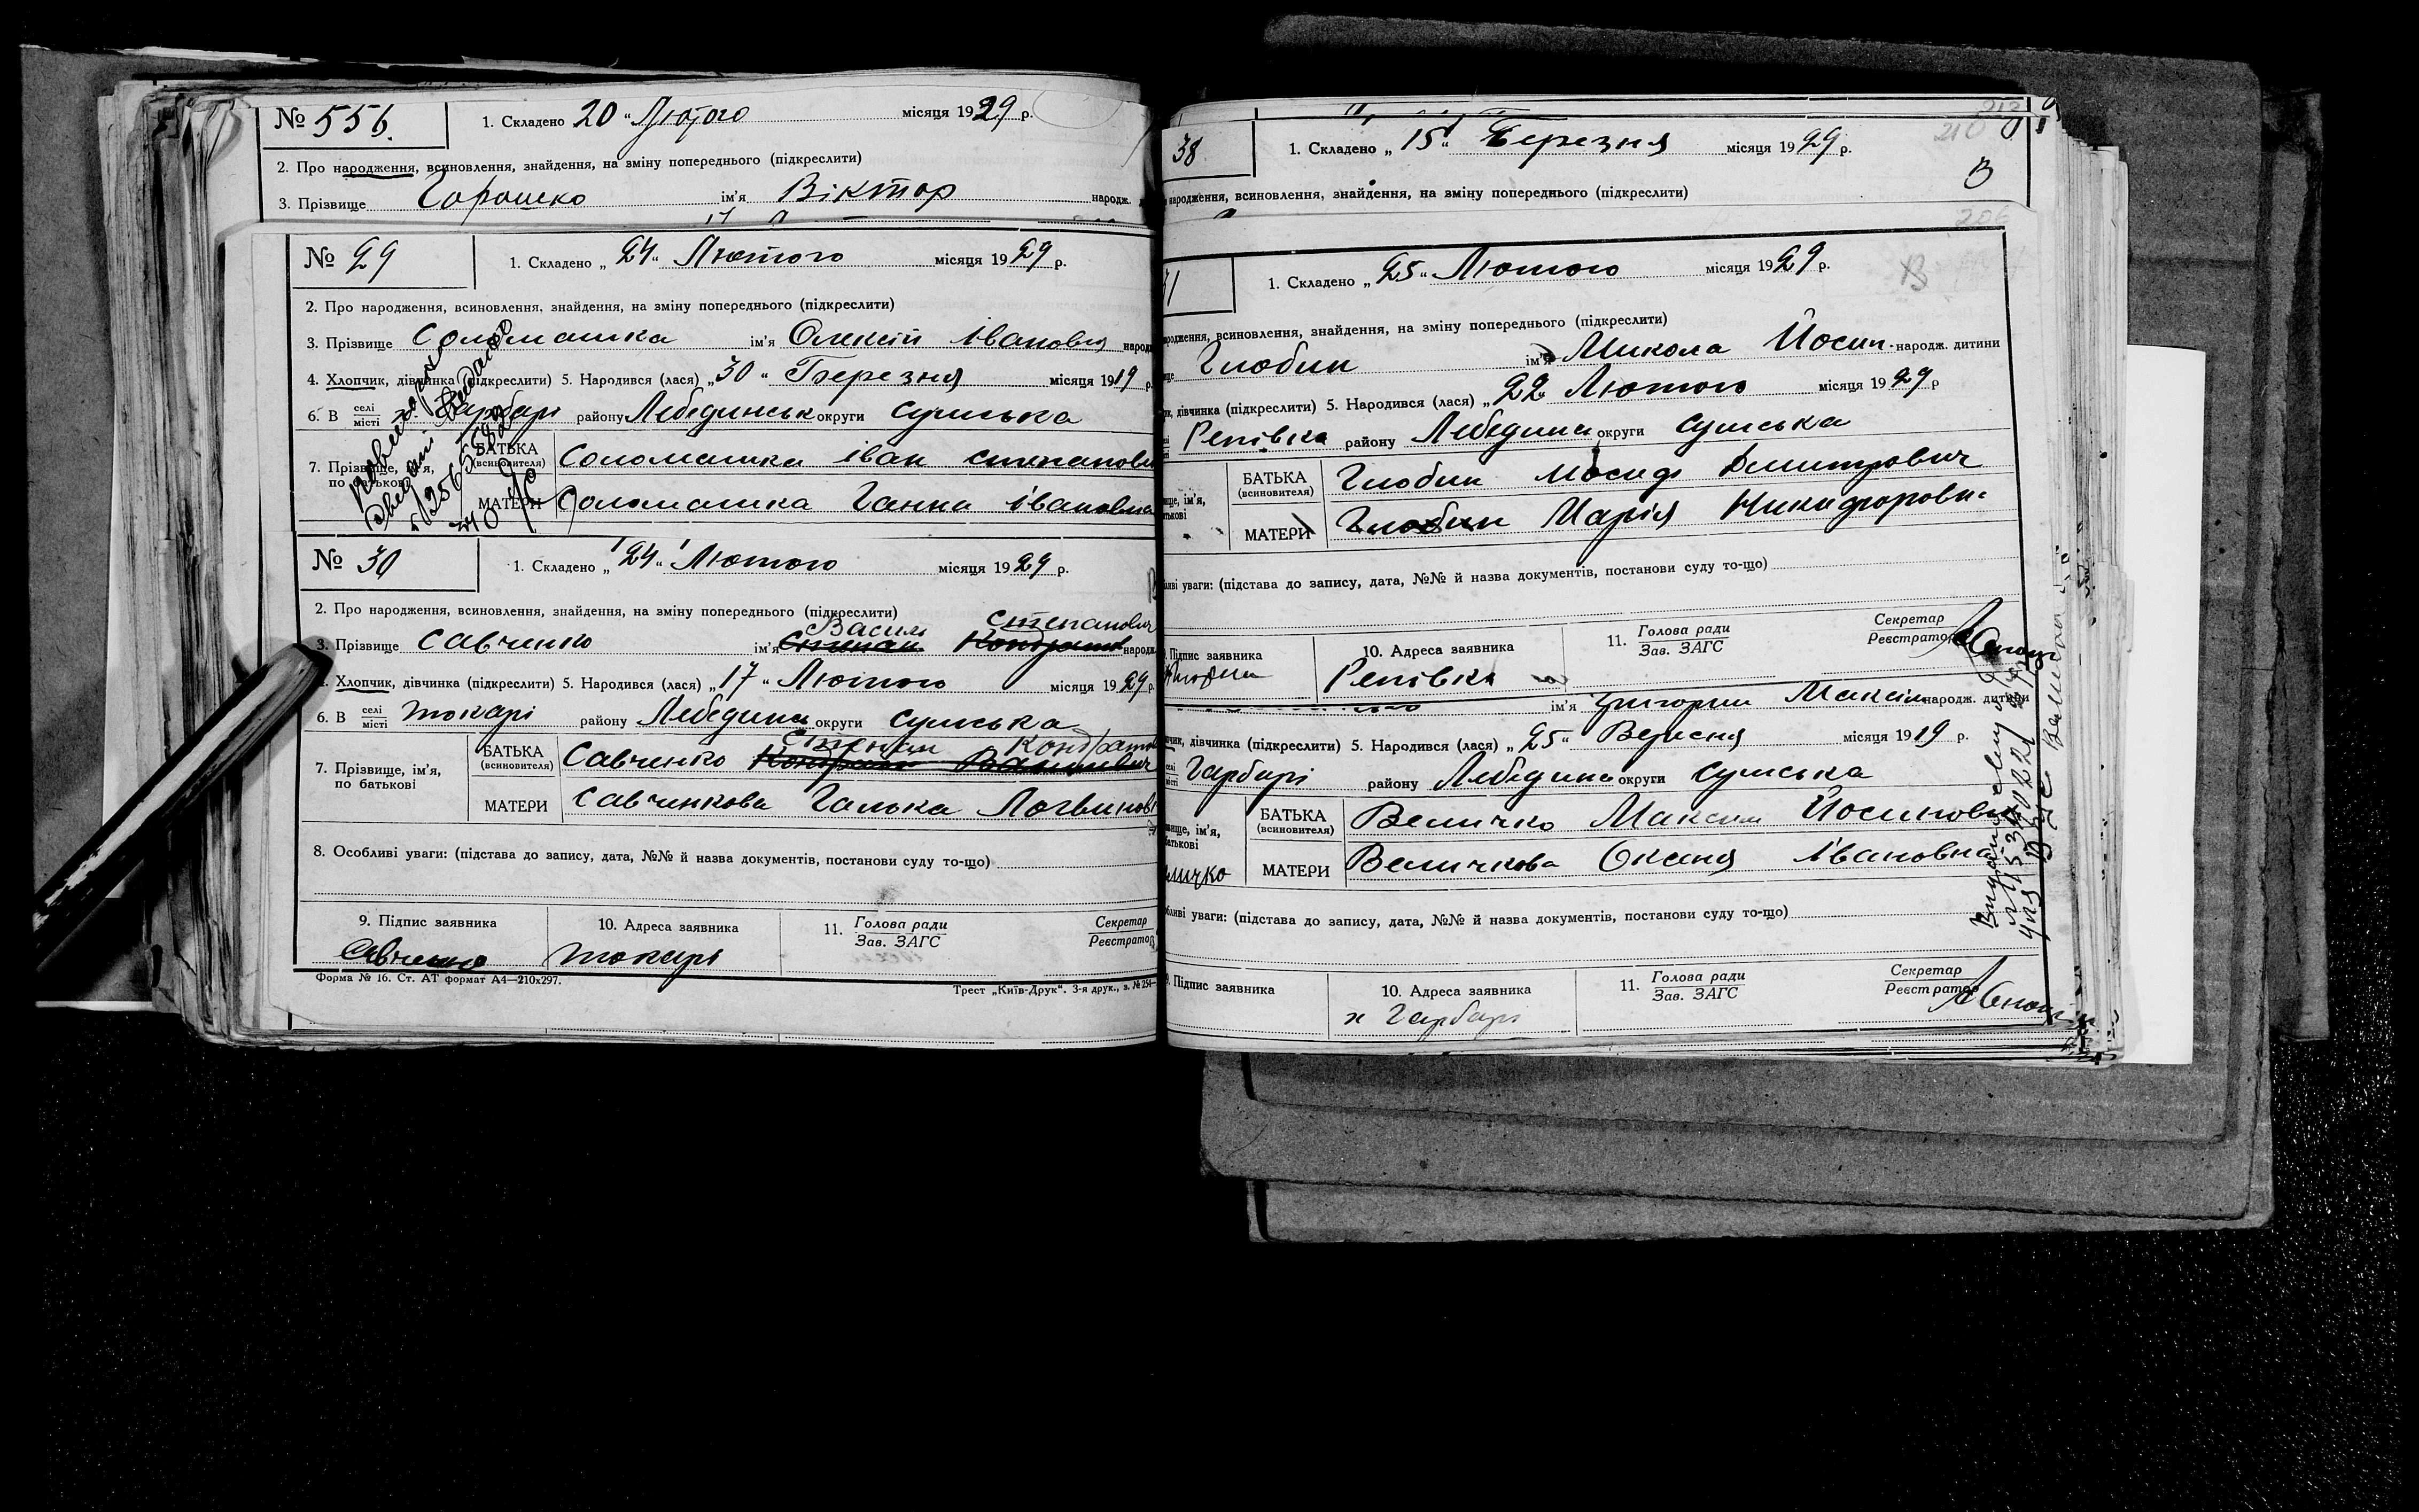 № 556. 1. Складено 20 "Лютого місяця 1929 р.
2. Про народження, всиновлення, знайдення, на зміну попереднього (підкреслити)
3. Прізвище Горошко ім'я Віктор народж.
№ 29 1. Складено „ 24 " Лютого місяця 1929 р.
2. Про народження, всиновлення, знайдення, на зміну попереднього (підкреслити)
3. Прізвище Соломашка ім'я Олексій Іванович народ
4. Хлопчик, дівчинка (підкреслити) 5. Народився (лася) „ 30 " Березня місяця 1919 р.
6. В селі місті Гарбарі району Лебединськ округи Сумська
7. Прізвище, ім'я, по батькові БАТЬКА (всиновителя) Соломашка Іван Степанови
МАТЕРИ Соломашка Ганна Івановна
№ 30 1. Складено „ 24 " Лютого місяця 1929 р.
2. Про народження, всиновлення, знайдення, на зміну попереднього (підкреслити)
Василь Степанович
3. Прізвище Савченко ім'я Степан Кондратов народж
4. Хлопчик, дівчинка (підкреслити) 5. Народився (лася) „ 17 " Лютого місяця 1929 р.
6. В селі місті Токарі району Лебединс округи Сумська
Степан Кондратов
7. Прізвище, ім'я, по батькові БАТЬКА (всиновителя) Савченко Кондрат
МАТЕРИ Савченкова Галька Логвинов
8. Особливі уваги: (підстава до запису, дата, №№ й назва документів, постанови суду то-що)
9. Підпис заявника 10. Адреса заявника 11. Голова ради Зав. ЗАГС Секретар Реєстратор
Савченко Токарі
Форма № 16. Ст. АТ формат А4—210х297. Трест „Київ-Друк". 3-я друк., з. № 254—
38 1. Складено „ 15 " Березня місяця 1929 р.
народження, всиновлення, знайдення, на зміну попереднього (підкреслити)
В
206
1. Складено „ 25 " Лютого місяця 1929 р.
В
народження, всиновлення, знайдення, на зміну попереднього (підкреслити)
Глобин ім'я Микола Йосип. народж. дитини
дівчинка (підкреслити) 5. Народився (лася) „ 22 Лютого місяця 1929 р
Репівка району Лебединс округи Сумська
БАТЬКА (всиновителя) Глобин Йосип Дмитрович
МАТЕРИ Глобин Марія Никифоровн
уваги: (підстава до запису, дата, №№ й назва документів, постанови суду то-що)
Підпис заявника 10. Адреса заявника 11. Голова ради Зав. ЗАГС Секретар Реєстратор
Глобин Репівка
ім'я Григорий Максим народж. дитини
дівчинка (підкреслити) 5. Народився (лася) „ 25 " Вересня місяця 1919 р.
Гарбарі району Лебединс округи Сумська
БАТЬКА (всиновителя) Величко Максим Йосипови
МАТЕРИ Величкова Оксеня Івановна
личко
уваги: (підстава до запису, дата, №№ й назва документів, постанови суду то-що)
9. Підпис заявника 10. Адреса заявника 11. Голова ради Зав. ЗАГС Секретар Реєстратор
х Гарбарі